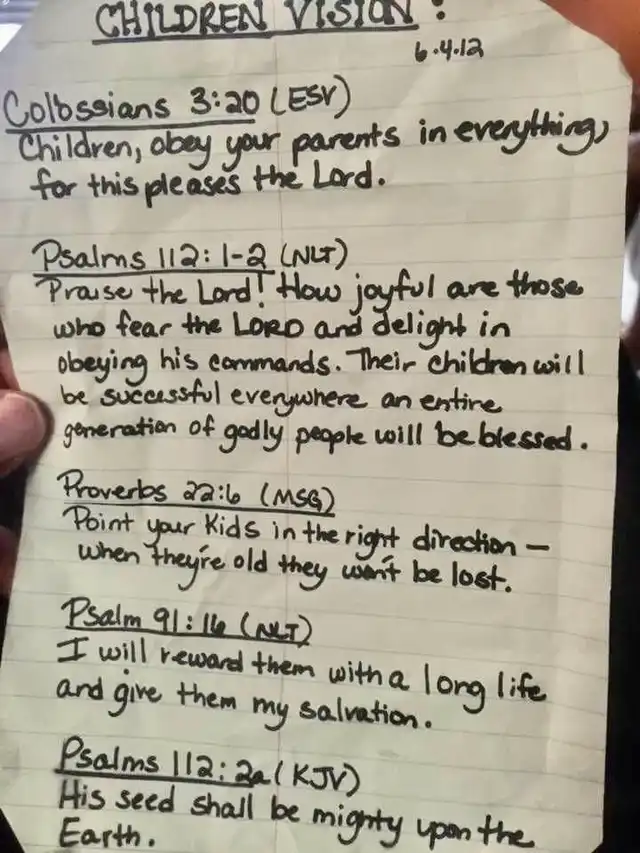 CHILDREN VISION:
6.4.12
Colossians 3:20 (ESV)
Children, obey your parents in everything,
for this pleases the Lord.
Psalms 112:1-2 (NLT)
Praise the Lord! How joyful are those
who fear the LORD and delight in
obeying his commands. Their children will
be successful everywhere an entire
generation of godly people will be blessed.
Proverbs 22:6 (MSG)
Point your Kids in the right direction —
when they're old they won't be lost.
Psalm 91:16 (NLT)
I will reward them with a long life
and give them my salvation.
Psalms 112:2a (KJV)
His seed shall be mighty upon the
Earth.